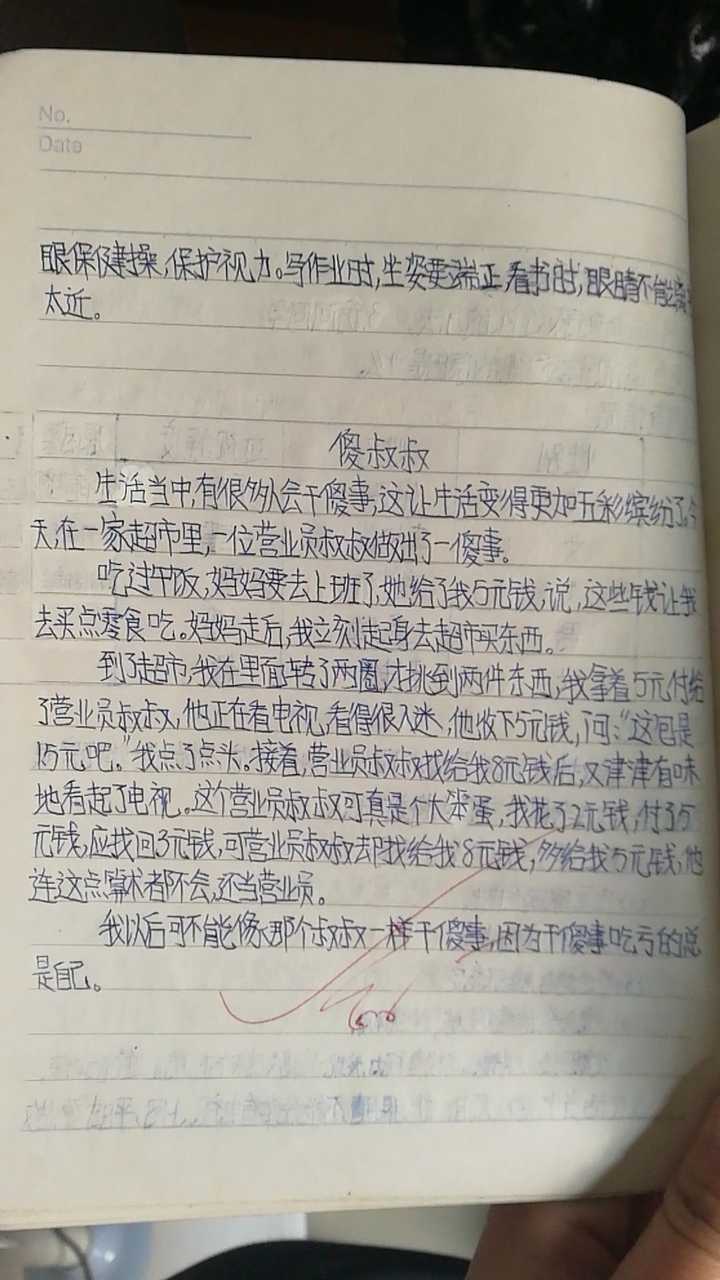 No.
Date
眼保健操,保护视力。写作业时,坐姿要端正,看书时,眼睛不能
太近。
傻叔叔
生活当中,有很多人会干傻事,这让生活变得更加五彩缤纷了。今
天,在一家超市里,一位营业员叔叔做出了一傻事。
吃过午饭,妈妈要去上班了,她给了我5元钱,说,这些钱让我
去买点零食吃。妈妈走后,我立刻起身去超市买东西。
到了超市,我在里面转了两圈,才挑到两件东西,我拿着5元付给
了营业员叔叔,他正在看电视,看得很入迷,他收下5元钱,问:“这包是
15元吧。”我点了点头。接着,营业员叔叔找给我8元钱后,又津津有味
地看起了电视。这个营业员叔叔可真是个大笨蛋,我花了2元钱,付了5
元钱,应找回3元钱,可营业员叔叔却找给我8元钱,多给我5元钱,他
连这点算术都不会,还当营业员。
我以后可不能像那个叔叔一样干傻事,因为干傻事吃亏的总
是自己。